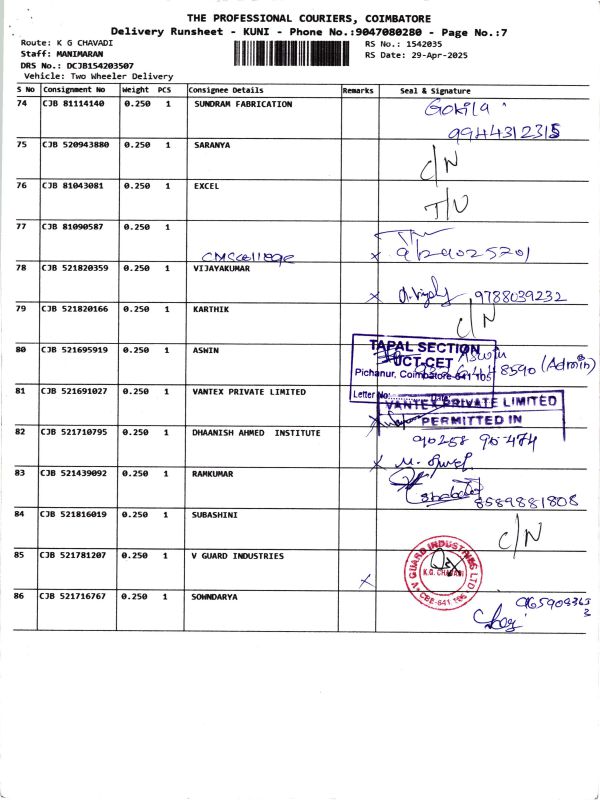 THE PROFESSIONAL COURIERS, COIMBATORE
Delivery Runsheet - KUNI - Phone No.:9047080280 - Page No.:7
Route: K G CHAVADI
RS No.: 1542035
Staff: MANIMARAN
RS Date: 29-Apr-2025
DRS No.: DCJB154203507
Vehicle: Two Wheeler Delivery
S No Consignment No Weight PCS Consignee Details Remarks Seal & Signature
74 CJB 81114140 0.250 1 SUNDRAM FABRICATION Gokila
9944312315
75 CJB 520943880 0.250 1 SARANYA C/N
76 CJB 81043081 0.250 1 EXCEL T/U
77 CJB 81090587 0.250 1
CMC college x 9629025201
78 CJB 521820359 0.250 1 VIJAYAKUMAR
x 9788039232
79 CJB 521820166 0.250 1 KARTHIK C/N
TAPAL SECTION
80 CJB 521695919 0.250 1 ASWIN Aswin
JCT-CET
48590 (Admin)
Pichanur, Coimbatore-641 105
81 CJB 521691027 0.250 1 VANTEX PRIVATE LIMITED Letter No: Date:
VANTEX PRIVATE LIMITED
PERMITTED IN
82 CJB 521710795 0.250 1 DHAANISH AHMED INSTITUTE 90258 90474
x
83 CJB 521439092 0.250 1 RAMKUMAR
8589881808
84 CJB 521816019 0.250 1 SUBASHINI C/N
85 CJB 521781207 0.250 1 V GUARD INDUSTRIES V GUARD INDUSTRIES LTD
K.G. CHAVADI
CBE-641 105
x
86 CJB 521716767 0.250 1 SOWNDARYA